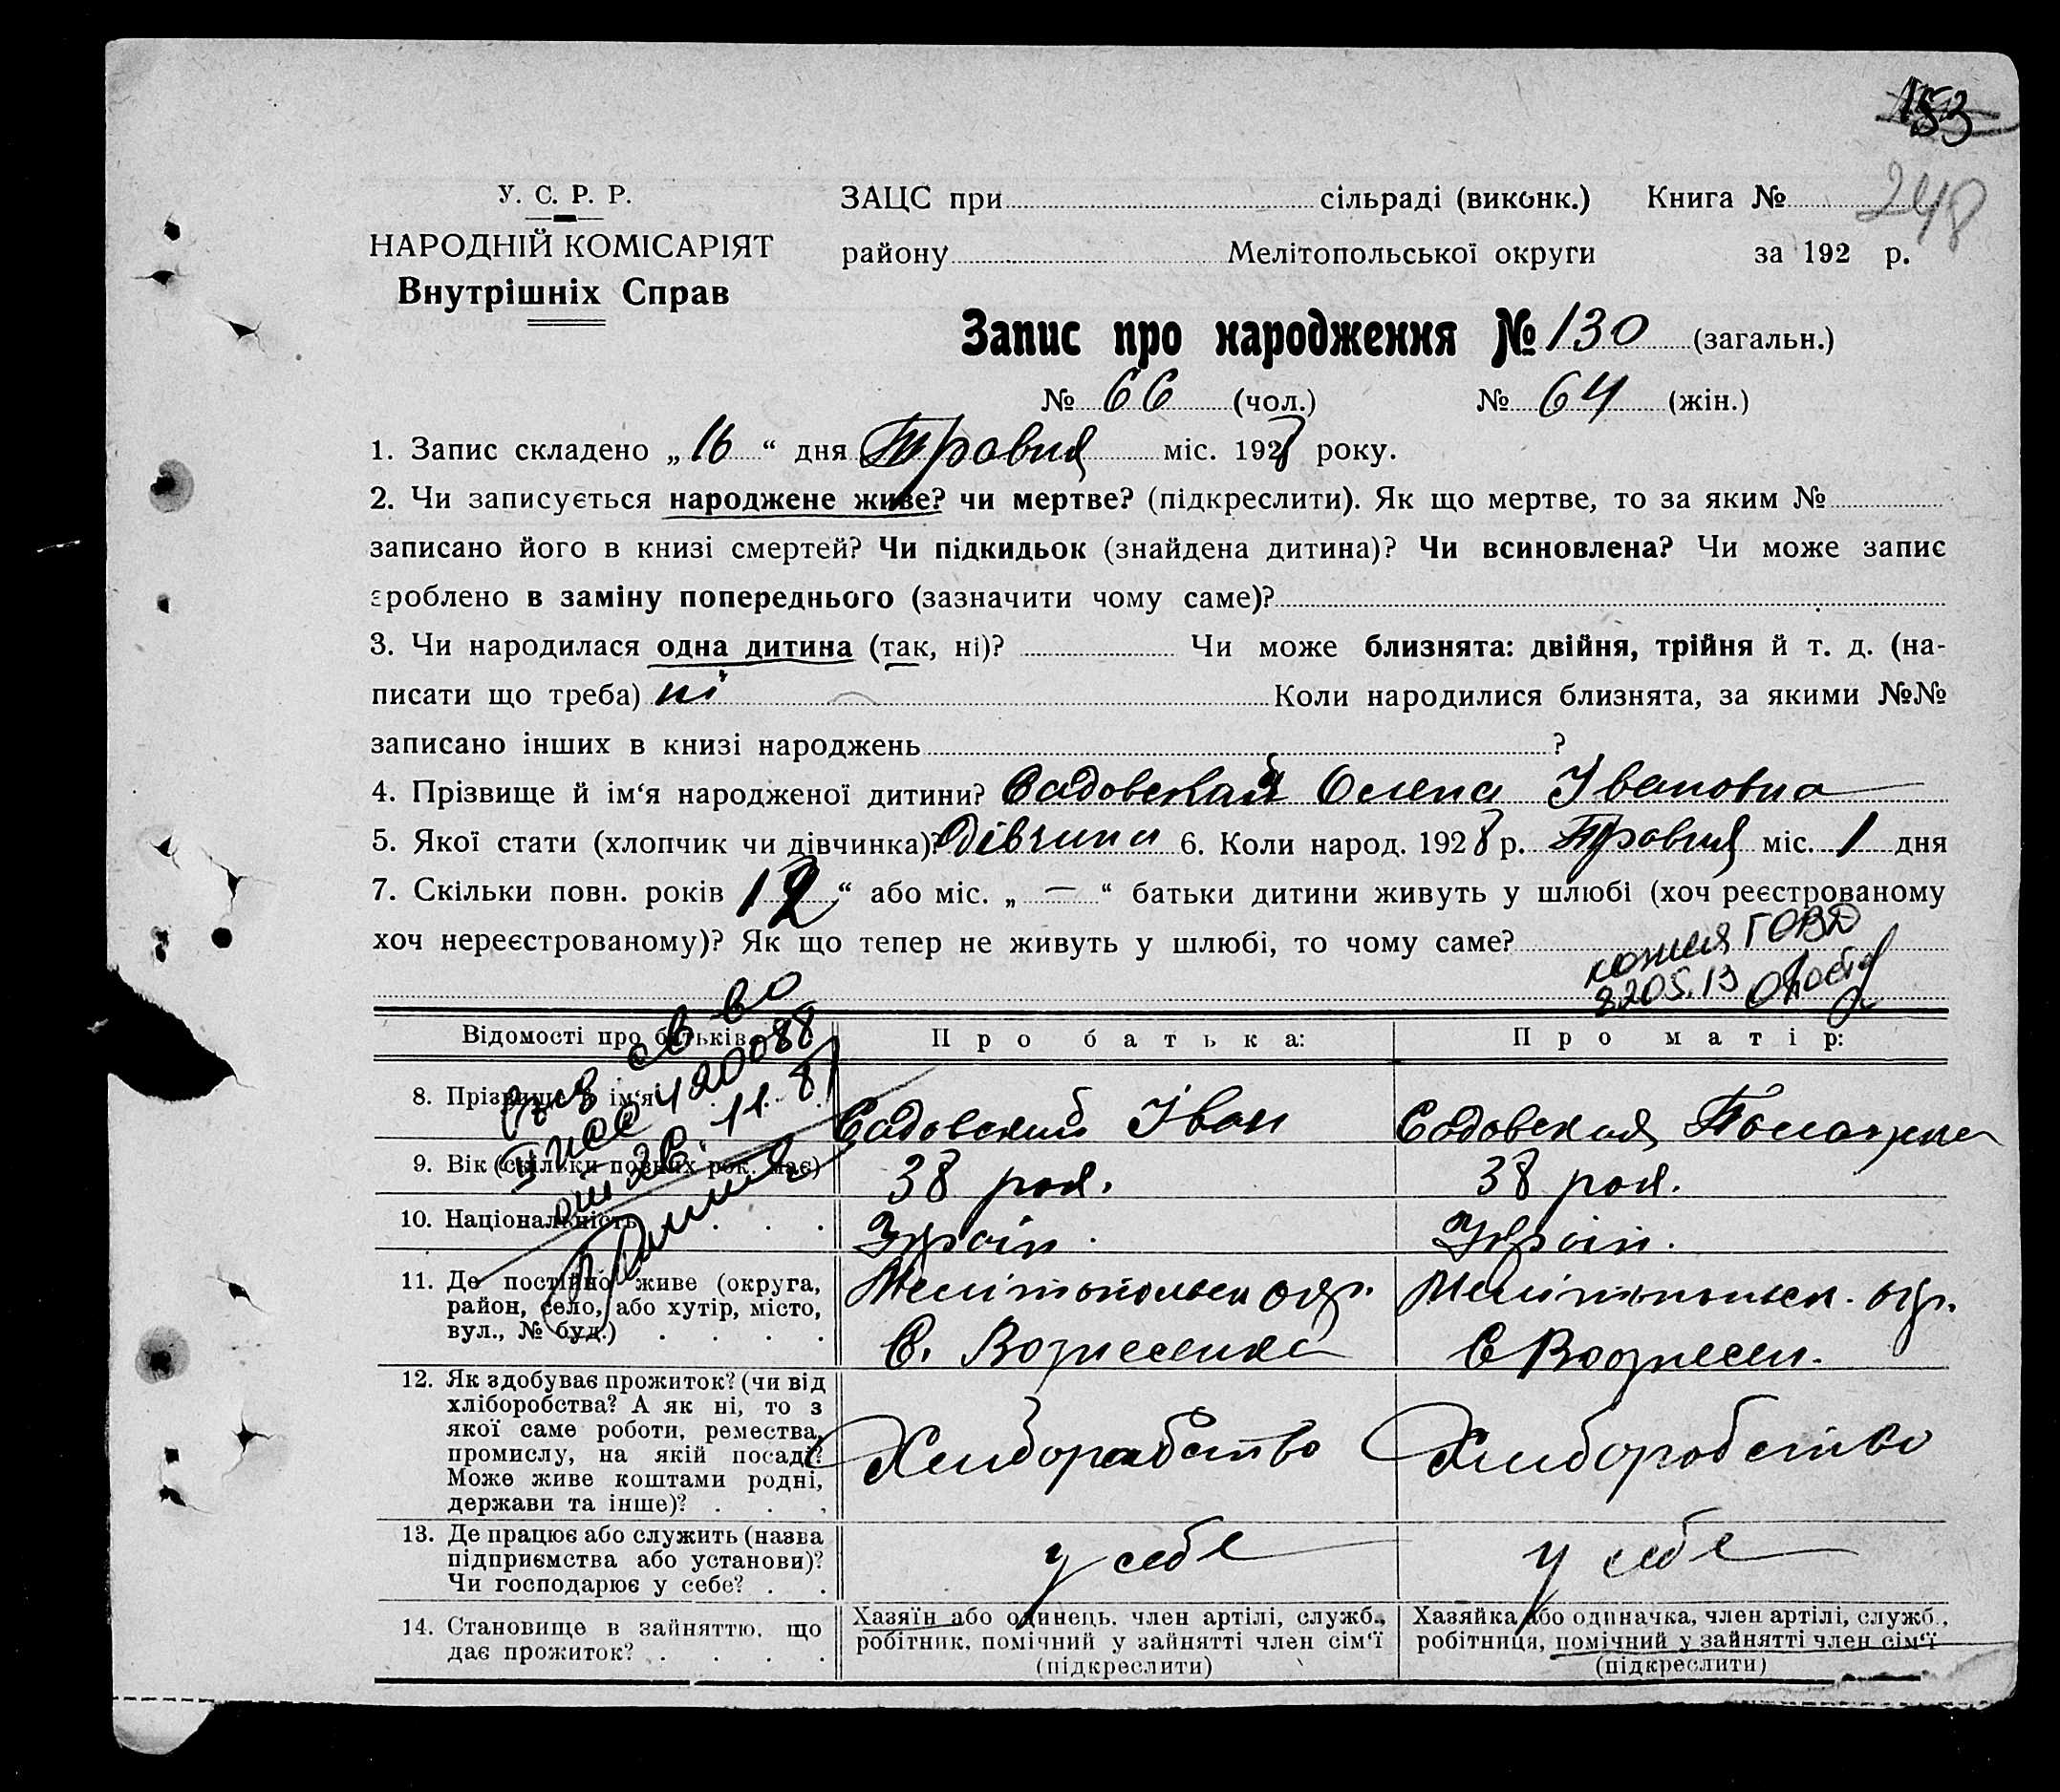 153
248
У. С. Р. Р.
НАРОДНІЙ КОМІСАРІЯТ
Внутрішніх Справ
ЗАЦС при сільраді (виконк.) Книга №
району Мелітопольської округи за 192 р.
Запис про народження № 130 (загальн.)
№ 66 (чол.) № 64 (жін.)
1. Запис складено „16“ дня Травня міс. 1928 року.
2. Чи записується народжене живе? чи мертве? (підкреслити). Як що мертве, то за яким №
записано його в книзі смертей? Чи підкидьок (знайдена дитина)? Чи всиновлена? Чи може запис
зроблено в заміну попереднього (зазначити чому саме)?
3. Чи народилася одна дитина (так, ні)? Чи може близнята: двійня, трійня й т. д. (на-
писати що треба) ні Коли народилися близнята, за якими №№
записано інших в книзі народжень ?
4. Прізвище й ім‘я народженої дитини? Садовская Олена Івановна
5. Якої стати (хлопчик чи дівчинка)? Дівчина 6. Коли народ. 1928 р. Травня міс. 1 дня
7. Скільки повн. років 12“ або міс. „—“ батьки дитини живуть у шлюбі (хоч реєстрованому
хоч нереєстрованому)? Як що тепер не живуть у шлюбі, то чому саме?
копия ГОВД
Відомості про батьків Про батька: Про матір:
8. Прізвище й ім‘я Садовский Іван Садовская
9. Вік (скільки повних рок. має) 38 рок. 38 рок.
10. Національність Україн. Україн.
11. Де постійно живе (округа,
район, село, або хутір, місто,
вул., № буд.)
Мелітопольск окр. Мелітопольск. окр.
С. Вознесенка С Вознесен.
12. Як здобуває прожиток? (чи від
хліборобства? А як ні, то з
якої саме роботи, ремества,
промислу, на якій посаді?
Може живе коштами родні,
держави та інше)?
Хлиборабство Хлиборобство
13. Де працює або служить (назва
підприємства або установи)?
Чи господарює у себе?
у себе у себе
14. Становище в зайняттю, що
дає прожиток?
Хазяїн або одинець, член артілі, служб.,
робітник, помічний у зайнятті член сім‘ї
(підкреслити)
Хазяйка або одиначка, член артілі, служб.,
робітниця, помічний у зайнятті член сім‘ї
(підкреслити)